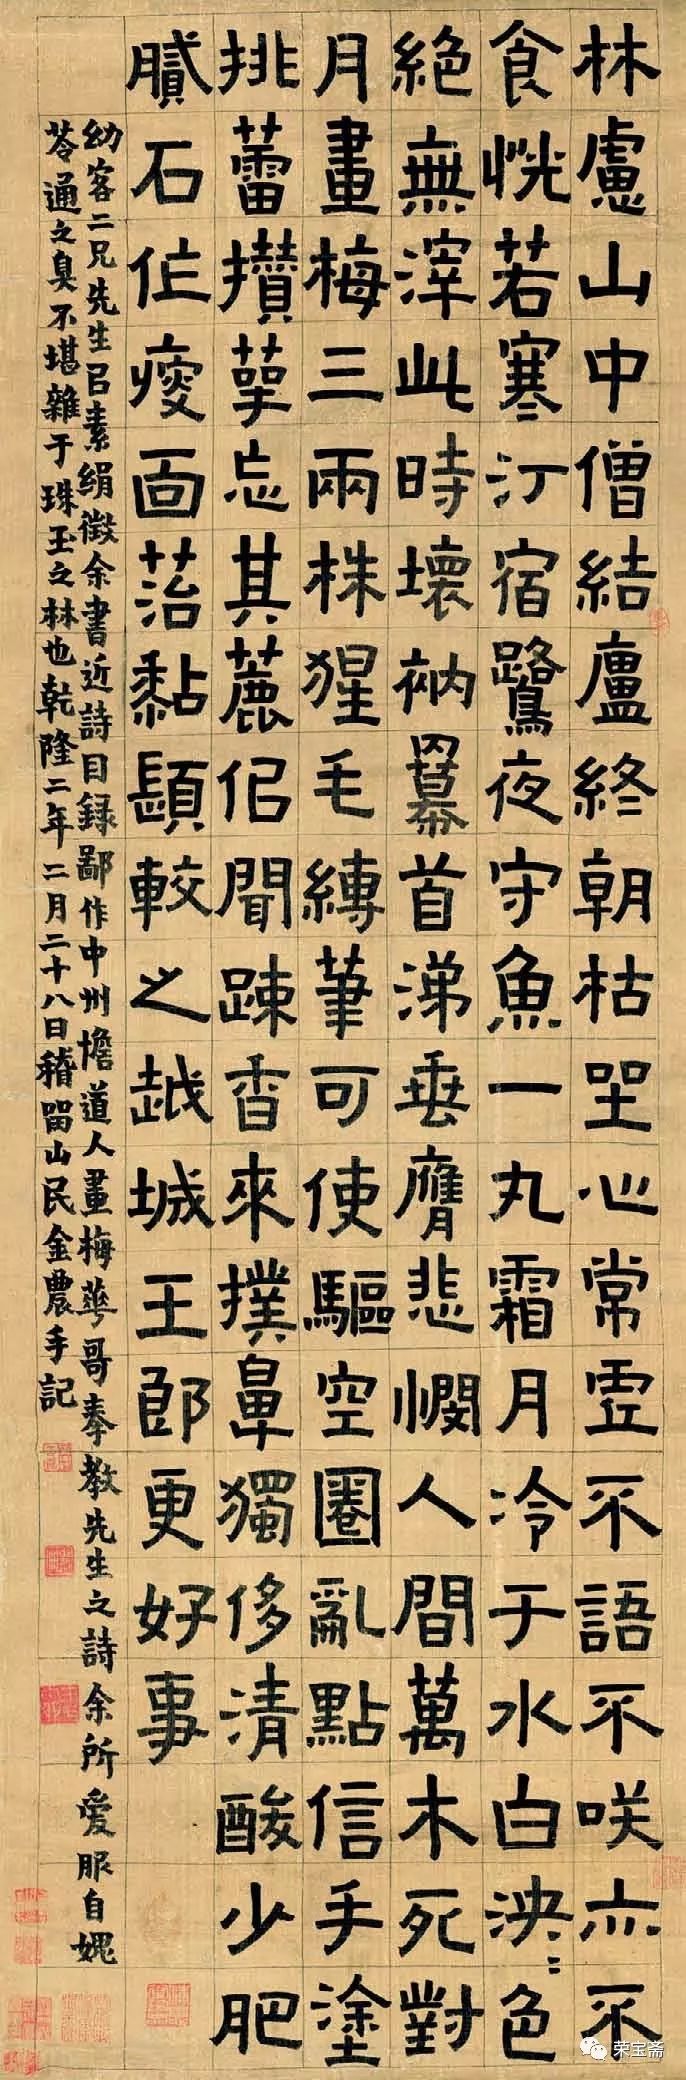 林慮山中僧結廬終朝枯坐心常虛不語不咲亦不
食恍若寒汀宿鷺夜守魚一丸霜月冷于水白泱〻色
絕無滓此時壞衲羃首涕垂膺悲憫人間萬木死對
月畫梅三兩株猩毛縛筆可使驅空圈亂點信手塗
挑蕾攢萼忘其麤侣聞踈香來撲鼻獨侈清酸少肥
膩石作瘦面苔黏顋較之越城王郎更好事
幼客二兄先生㠯素絹徵余書近詩因録鄙作中州憺道人畫梅華哥奉教先生之詩余所愛服自媿
苓通之臭不堪雜于珠玉之林也乾隆二年二月二十八日稽留山民金農手記
荣宝斋